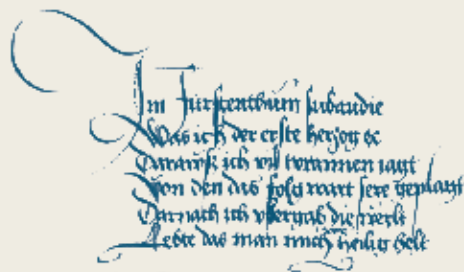 Im Furstenthum subaudie
Was ich der erste herzog ee
Daraus ich vil tyrannen iagt
Von den das folch wart sere geplagt
Darnach ich vbergab die welt
Lebte das man mich heilig helt